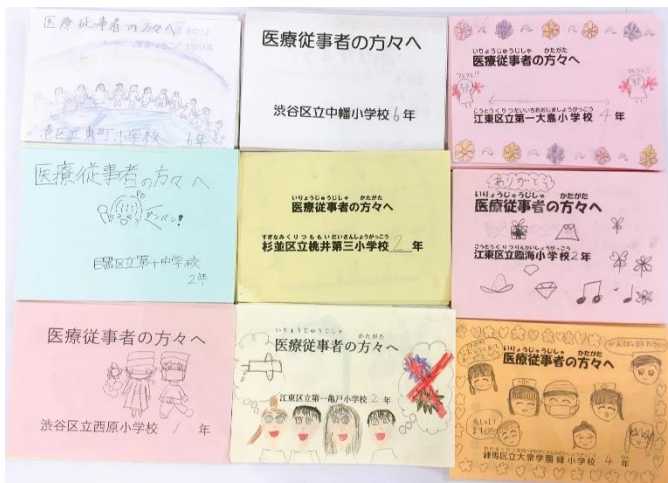 医療従事者の方々へ
港区立東町小学校 6年
医療従事者の方々へ
渋谷区立中幡小学校 6年
いりょうじゅうじしゃ かたがた
医療従事者の方々へ
こうとうくりつだいいちおおじましょうがっこう
江東区立第一大島小学校 4年
医療従事者の方々へ
ガンバレ!
目黒区立第十中学校
2年
いりょうじゅうじしゃ かたがた
医療従事者の方々へ
すぎなみくりつももいだいさんしょうがっこう
杉並区立桃井第三小学校 2年
ありがとう
いりょうじゅうじしゃ かたがた
医療従事者の方々へ
こうとうくりつりんかいしょうがっこう
江東区立臨海小学校2年
医療従事者の方々へ
渋谷区立西原小学校 1年
いりょうじゅうじしゃ かたがた
医療従事者の方々へ
江東区立第一亀戸小学校 2年
いりょうじゅうじしゃ かたがた
医療従事者の方々へ
練馬区立大泉学園緑小学校 4年